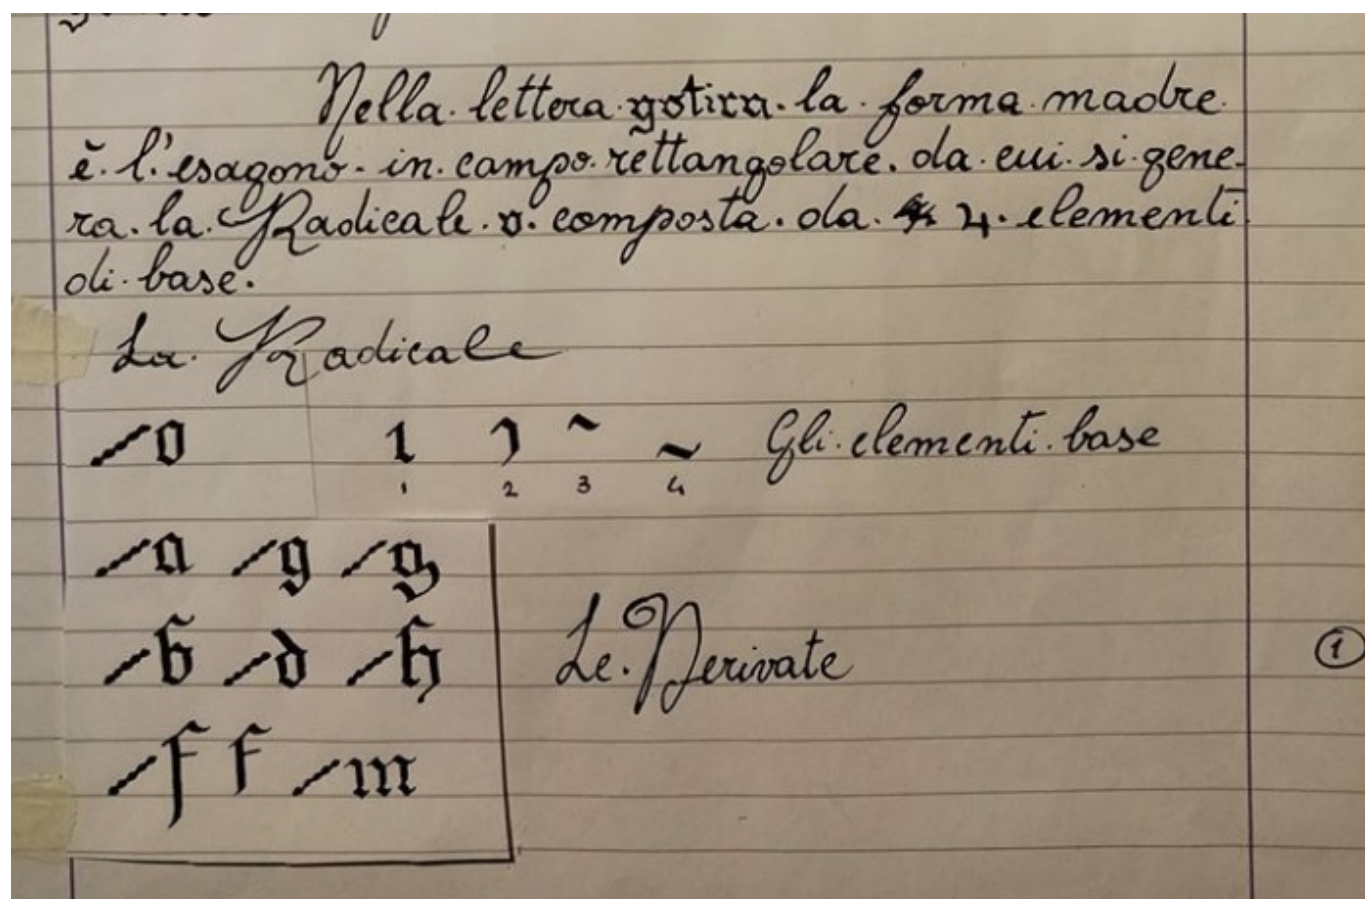 Nella· lettera· gotica· la· forma· madre·
è· l'esagono· in· campo· rettangolare· da· cui· si· gene-
ra· la· Radicale· o· composta· da· 4· elementi
di· base·
La· Radicale
o 1 2 3 4 Gli· elementi· base
a g g
b d h
Le· Derivate
1
f f m